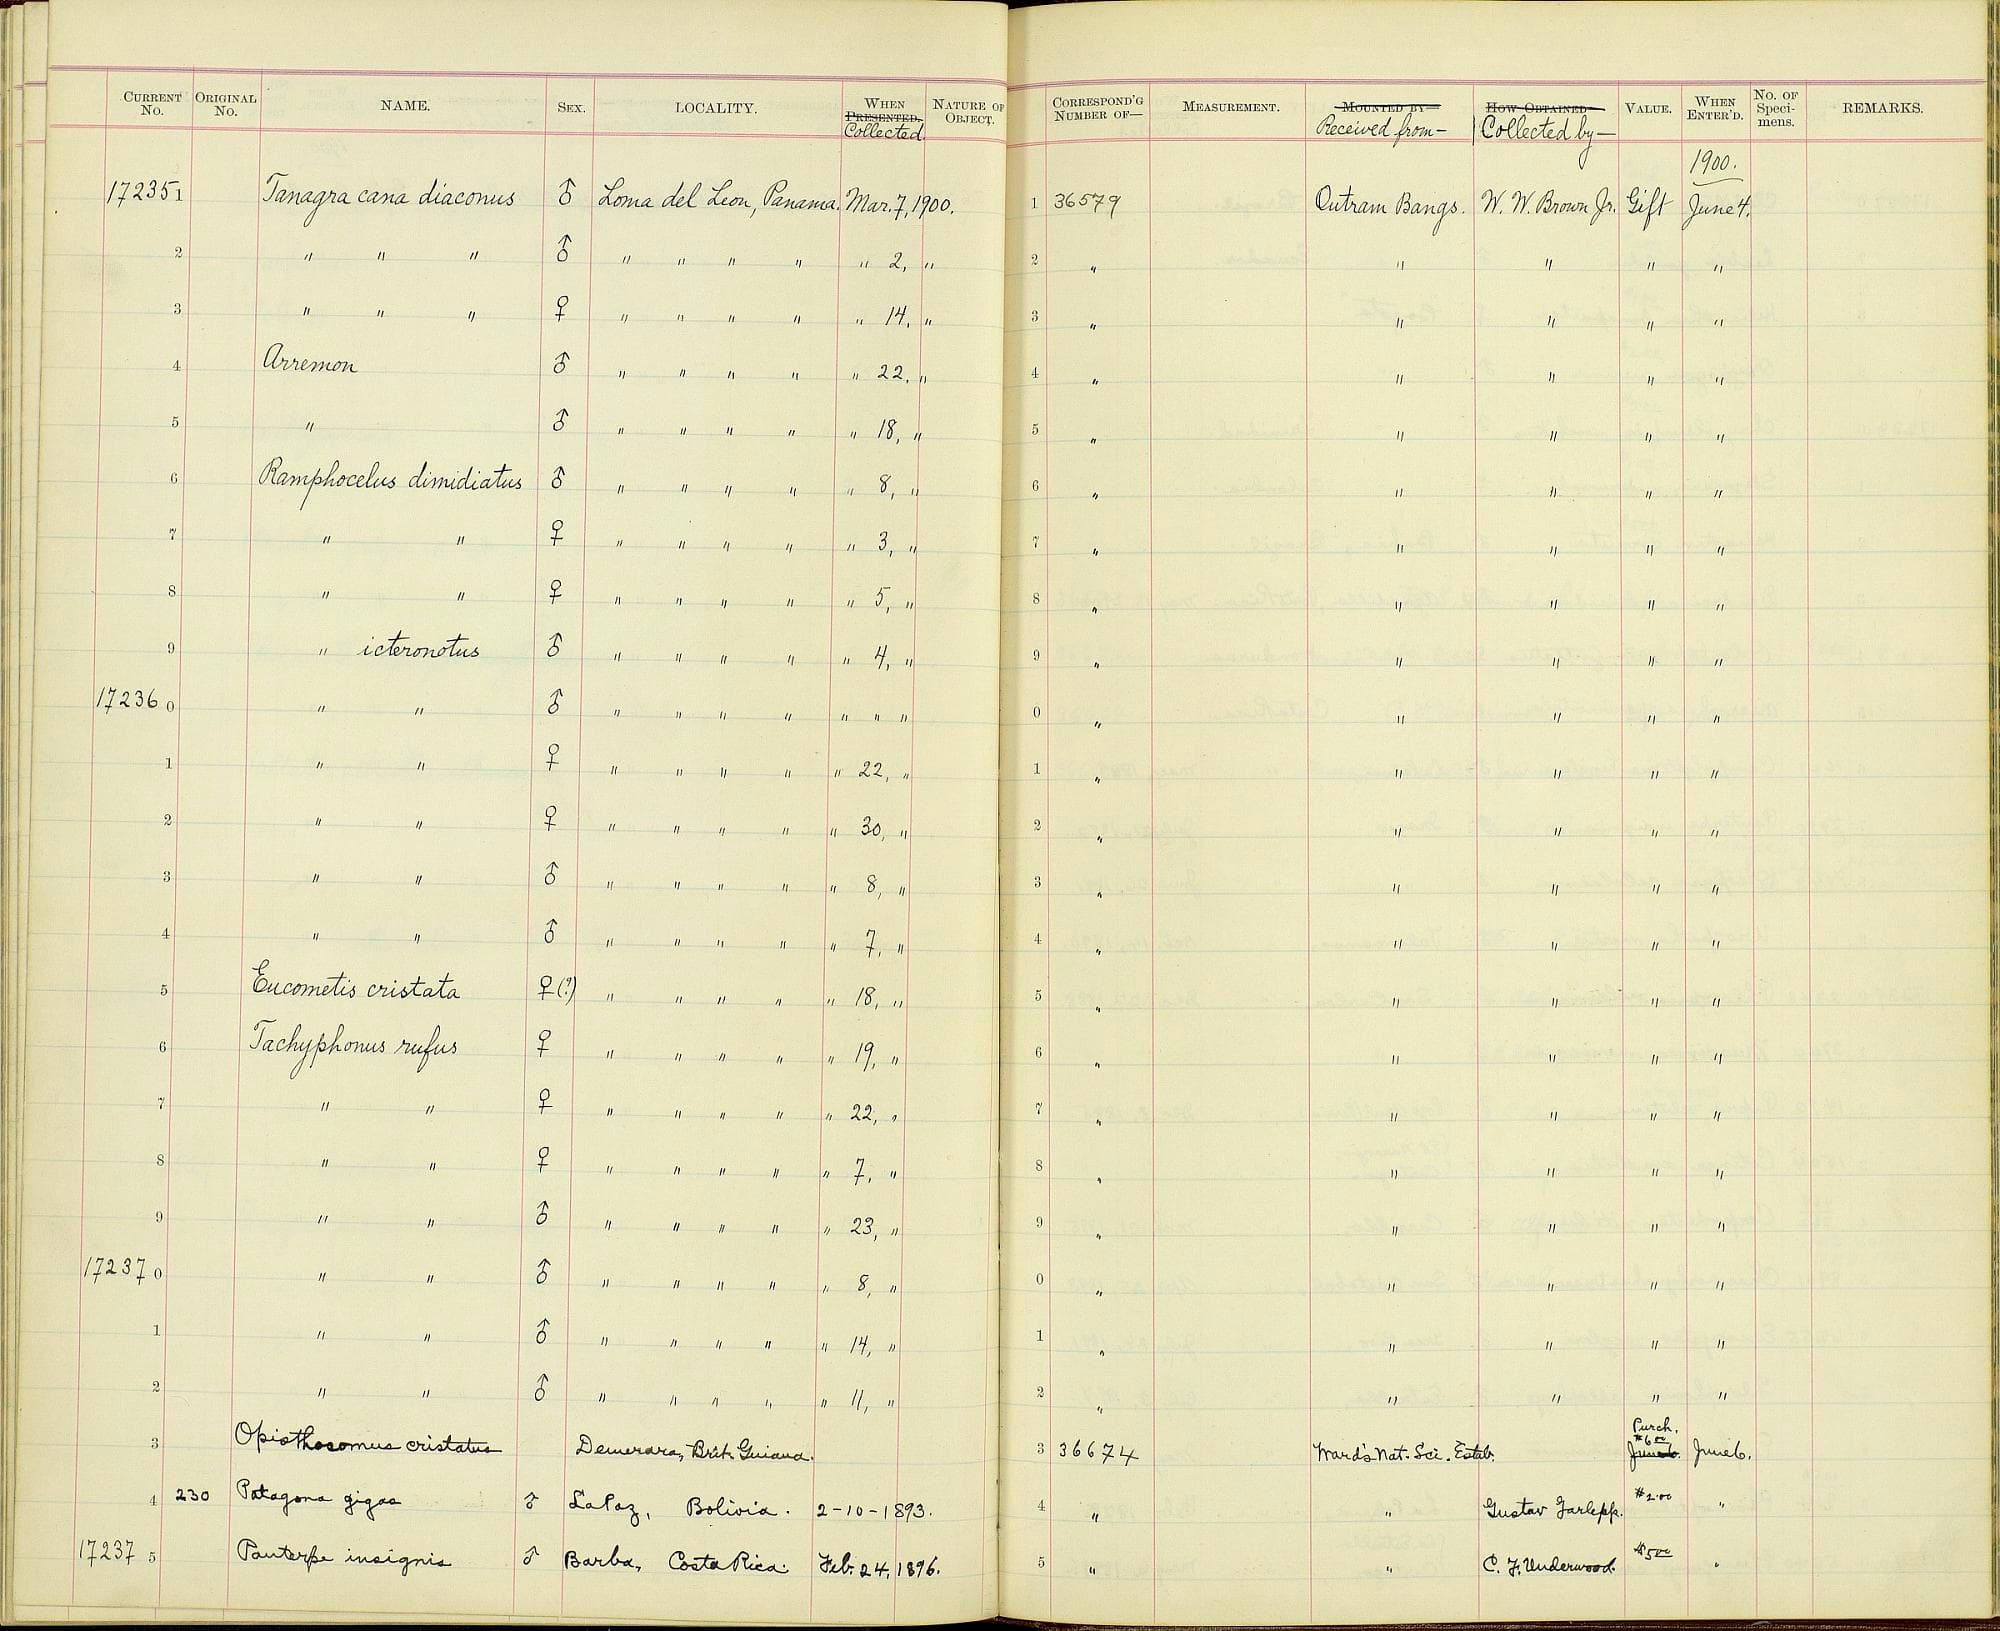 CURRENT No. ORIGINAL No. NAME. SEX. LOCALITY. WHEN PRESENTED. Collected NATURE OF OBJECT. CORRESPOND'G NUMBER OF— MEASUREMENT. MOUNTED BY— Received from— HOW OBTAINED— Collected by— VALUE. WHEN ENTER'D. No. OF Speci-mens. REMARKS.
1900.
172351 Tanagra cana diaconus ♂ Loma del Leon, Panama. Mar. 7, 1900. 1 36579 Outram Bangs. W. W. Brown Jr. Gift June 4.
2 " " " ♂ " " " " " 2, " 2 " " " " "
3 " " " ♀ " " " " " 14, " 3 " " " " "
4 Arremon ♂ " " " " " 22, " 4 " " " " "
5 " ♂ " " " " " 18, " 5 " " " " "
6 Ramphocelus dimidiatus ♂ " " " " " 8, " 6 " " " " "
7 " " ♀ " " " " " 3, " 7 " " " " "
8 " " ♀ " " " " " 5, " 8 " " " " "
9 " icteronotus ♂ " " " " " 4, " 9 " " " " "
172360 " " ♂ " " " " " " " 0 " " " " "
1 " " ♀ " " " " " 22, " 1 " " " " "
2 " " ♀ " " " " " 30, " 2 " " " " "
3 " " ♂ " " " " " 8, " 3 " " " " "
4 " " ♂ " " " " " 7, " 4 " " " " "
5 Eucometis cristata ♀(?) " " " " " 18, " 5 " " " " "
6 Tachyphonus rufus ♀ " " " " " 19, " 6 " " " " "
7 " " ♀ " " " " " 22, " 7 " " " " "
8 " " ♀ " " " " " 7, " 8 " " " " "
9 " " ♂ " " " " " 23, " 9 " " " " "
172370 " " ♂ " " " " " 8, " 0 " " " " "
1 " " ♂ " " " " " 14, " 1 " " " " "
2 " " ♂ " " " " " 11, " 2 " " " " "
3 Opisthocomus cristatus Demerara, Brit. Guiana. 3 36674 Ward's Nat. Sci. Estab. Purch. $6.00 June 6. June 6.
4 230 Patagona gigas ♂ La Paz, Bolivia. 2-10-1893. 4 " " Gustav Garlepp. $2.00 "
172375 Panterpe insignis ♂ Barba, Costa Rica. Feb. 24, 1896. 5 " " C. F. Underwood. $5.00 "